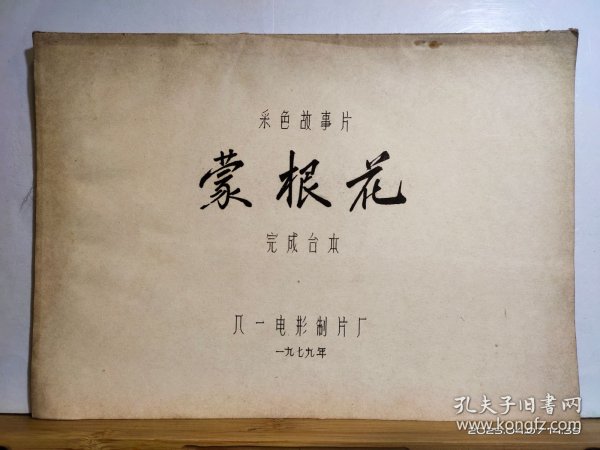 采色故事片
蒙根花
完成台本
八一电形制片厂
一九七九年
孔夫子旧书网
www.kongfz.com